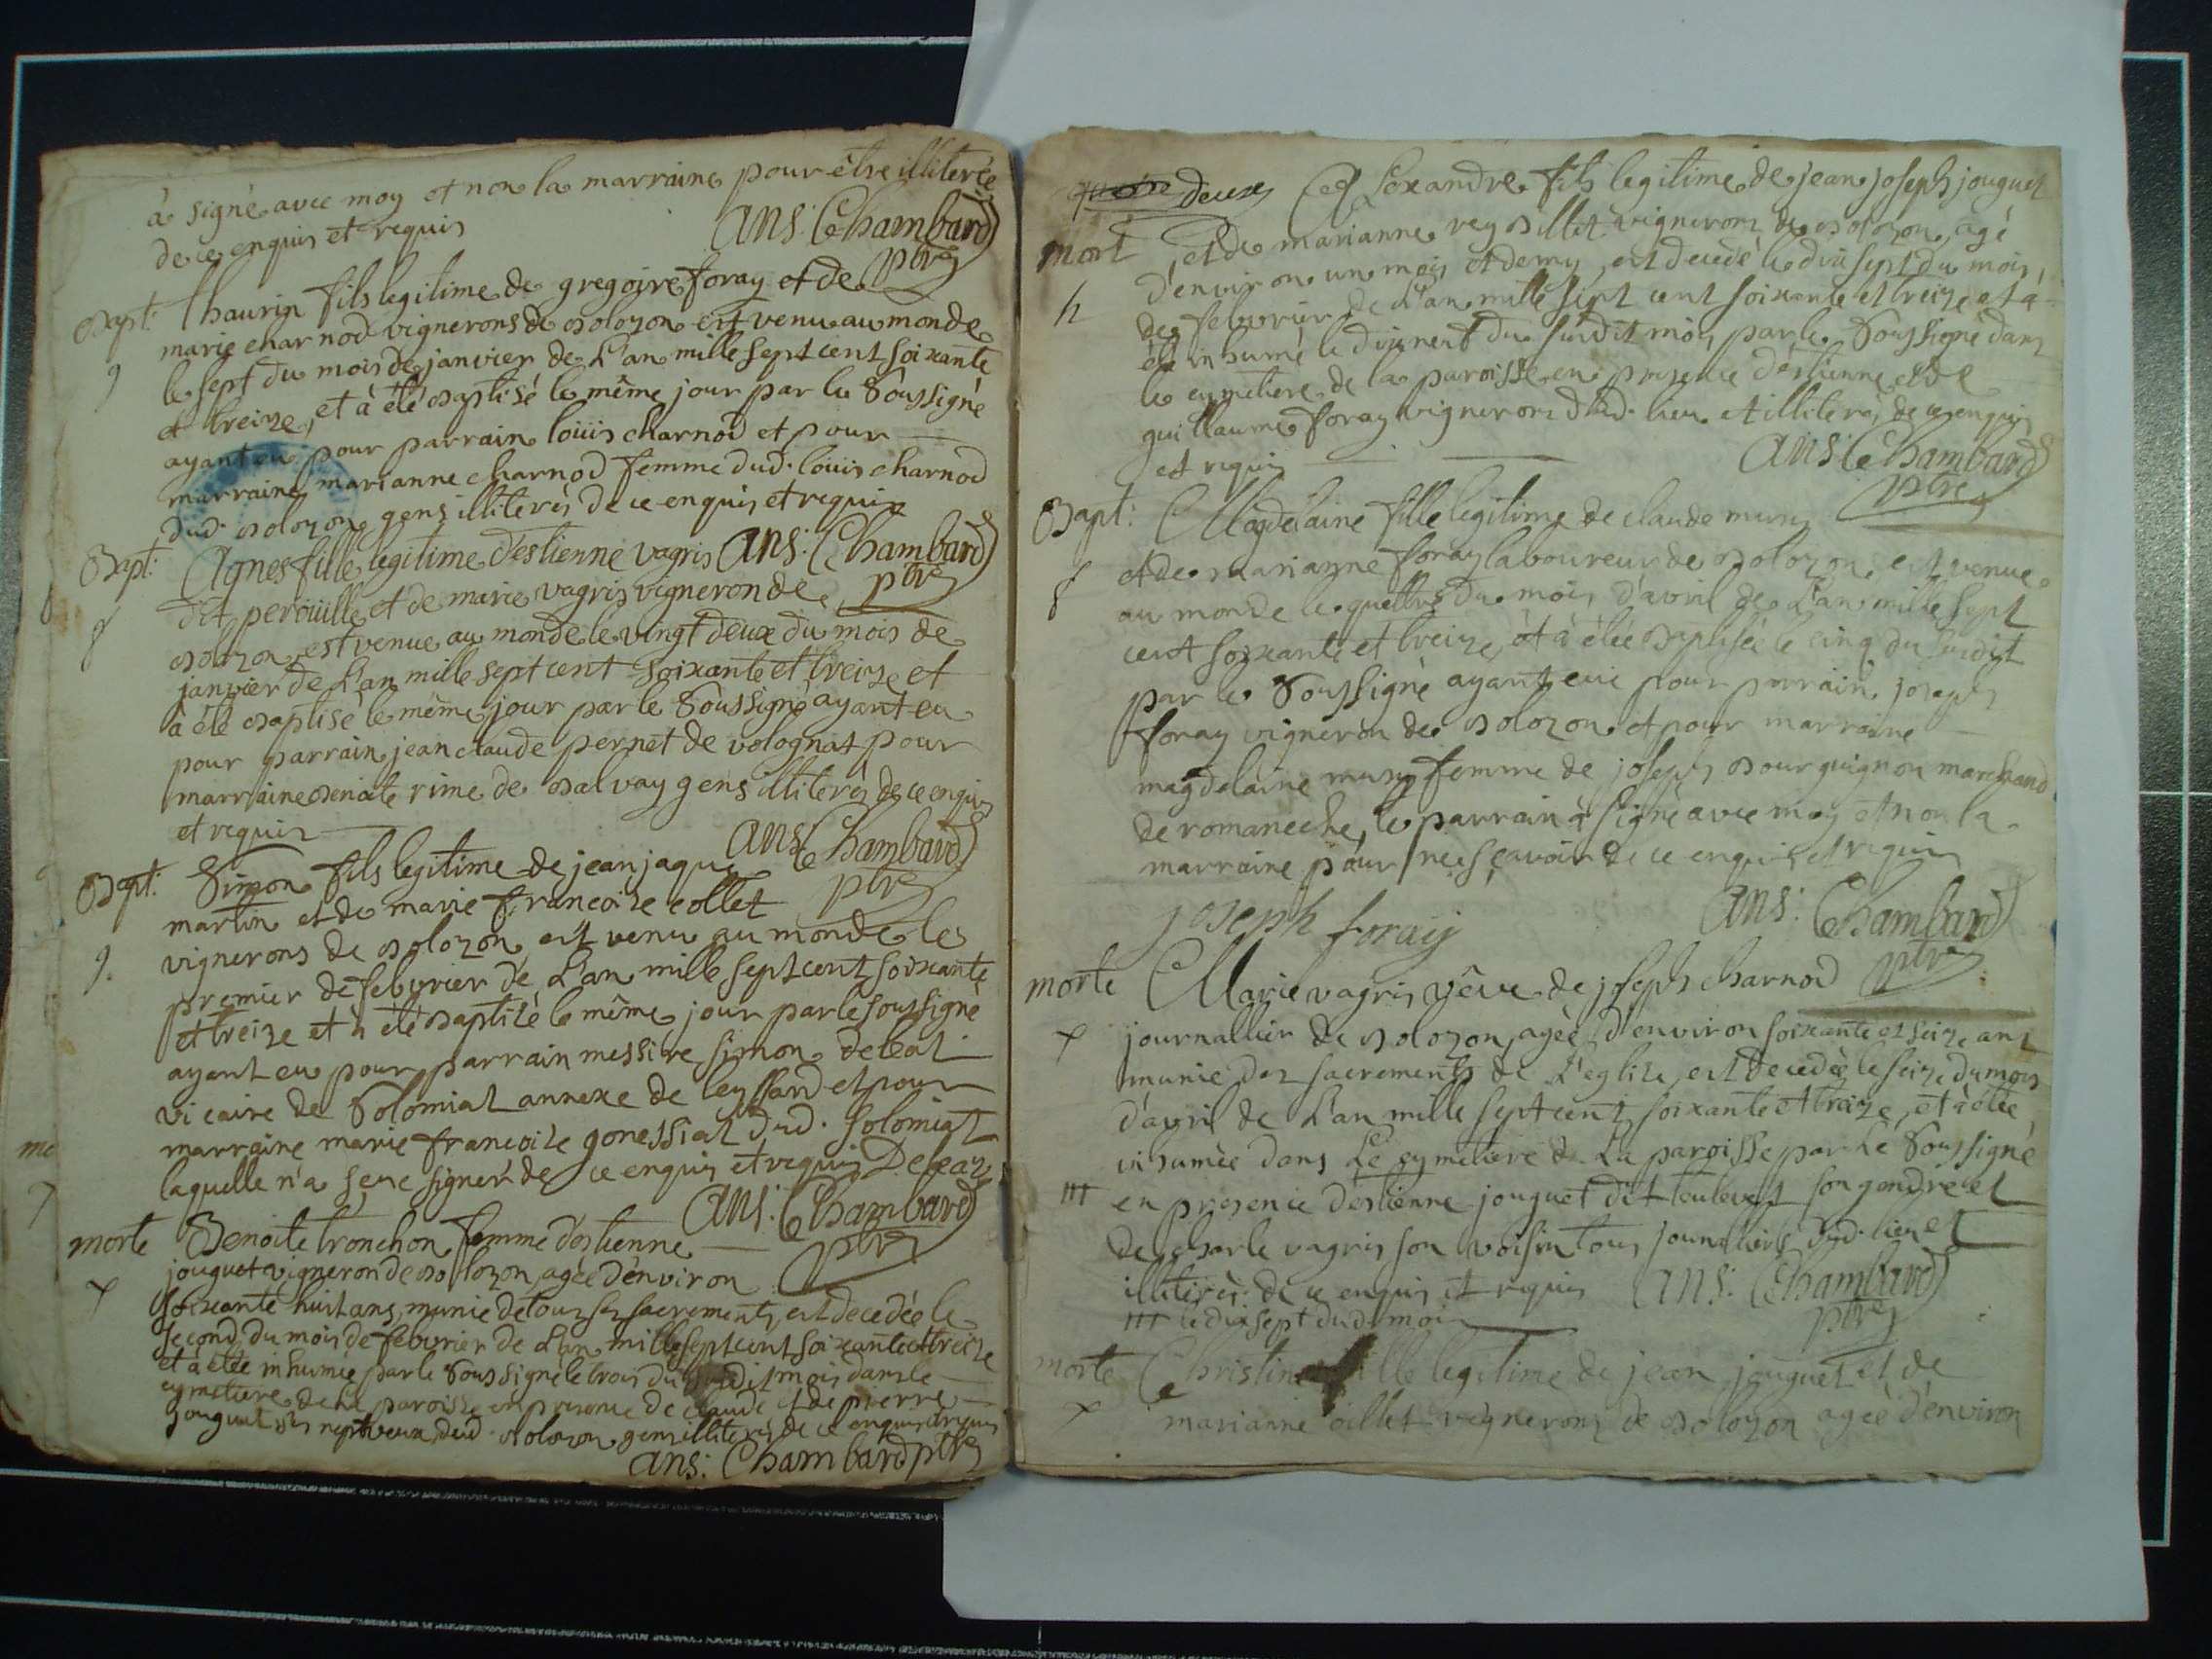 à signé avec moy et non la marraine pour être illiterée
de ce enquis et requis ans: Chambard
ptre
Bapt: Thaurin fils legitime de gregoire foray et de
marie charnod vignerons de bolozon est venu au monde
9 le sept du mois de janvier de L'an mille sept cent soixante
et treize, et à été baptisé le même jour par le Soussigné
ayant eu pour parrain loüis charnod et pour
marraine marianne charnod femme dud. loüis charnod
dud. bolozon gens illiterés de ce enquis et requis
Bapt: Agnes fille legitime d'estienne vagris ans: Chambard
dit peroüille et de marie vagris vigneron de ptre
8 bolozon est venue au monde le vingt deux du mois de
janvier de L'an mille sept cent soixante et treize et
à été baptisé le même jour par le Soussigné ayant eu
pour parrain jean claude pernet de volognat pour
marraine benoite rime de balvay gens illiterés de ce enquis
et requis ans: Chambard
Bapt: Simon fils legitime de jean jaque ptre
martin et de marie francoise collet
9. vignerons de bolozon est venu au monde le
premier de febvrier de L'an mille sept cent soixante
et treize et à été baptizé le même jour par le soussigné
ayant eu pour parrain messire simon deleat
vicaire de Solomiat annexe de leyssard et pour
marraine marie francoise gonessiat dud. solomiat
laquelle n'a sçeue signer de ce enquis et requis Deleaz
ans: Chambard
morte Benoite tronchon femme d'estienne ptre
jouguet vigneron de bolozon agée d'environ
soixante huit ans, munie de tous ses sacrements, est decedée le
second du mois de febvrier de L'an mille sept cent soixante et treize
et à étée inhumée par le Soussigné le trois du susdit mois dans le
cymetiere de la paroisse en presence de claude et de pierre
jouguet ses nepveux dud. bolozon gens illiterés de ce enquis et requis
ans: Chambard ptre
deux Alexandre fils legitime de jean joseph jouguet
mort et de marianne reydellet vignerons de bolozon, agé
d'environ un mois et demy, est decedé le dix sept du mois
h de febvrier de L'an mille sept cent soixante et treize et à
été inhumé le dixneuf du susdit mois par le Soussigné dans
le cymetiere de la paroisse en presence d'estienne et de
guillaume foray vignerons dud. lieu et illiterés de ce enquis
et requis ans: Chambard
ptre
Bapt: Magdelaine fille legitime de claude
et de marianne foray laboureur de bolozon est venue
8 au monde le quattre du mois d'avril de L'an mille sept
cent soixante et treize, et à étée baptisée le cinq du susdit
par le Soussigné ayant eue pour parrain joseph
foray vigneron de bolozon et pour marraine
magdelaine femme de joseph bourguignon marchand
de romaneche, le parrain à signé avec moy et non la
marraine pour ne sçavoir de ce enquis et requis
joseph foray ans: Chambard
ptre
morte Marie vagris vêve de joseph charnod
journallier de bolozon, agée d'environ soixante et seize ans
munie des sacrements de L'eglise, est decedée le seize du mois
d'avril de L'an mille sept cent soixante et treize, et à étée
inhumée dans Le cymetiere de La paroisse par Le Soussigné
en presence d'estienne jouguet dit son gendre et
de charle vagris son voisin tous journaliers dud. lieu et
illiterés de ce enquis et requis ans: Chambard
le dix sept dud. mois ptre
morte Christine fille legitime de jean jouguet et de
marianne oillet vignerons de bolozon agée d'environ